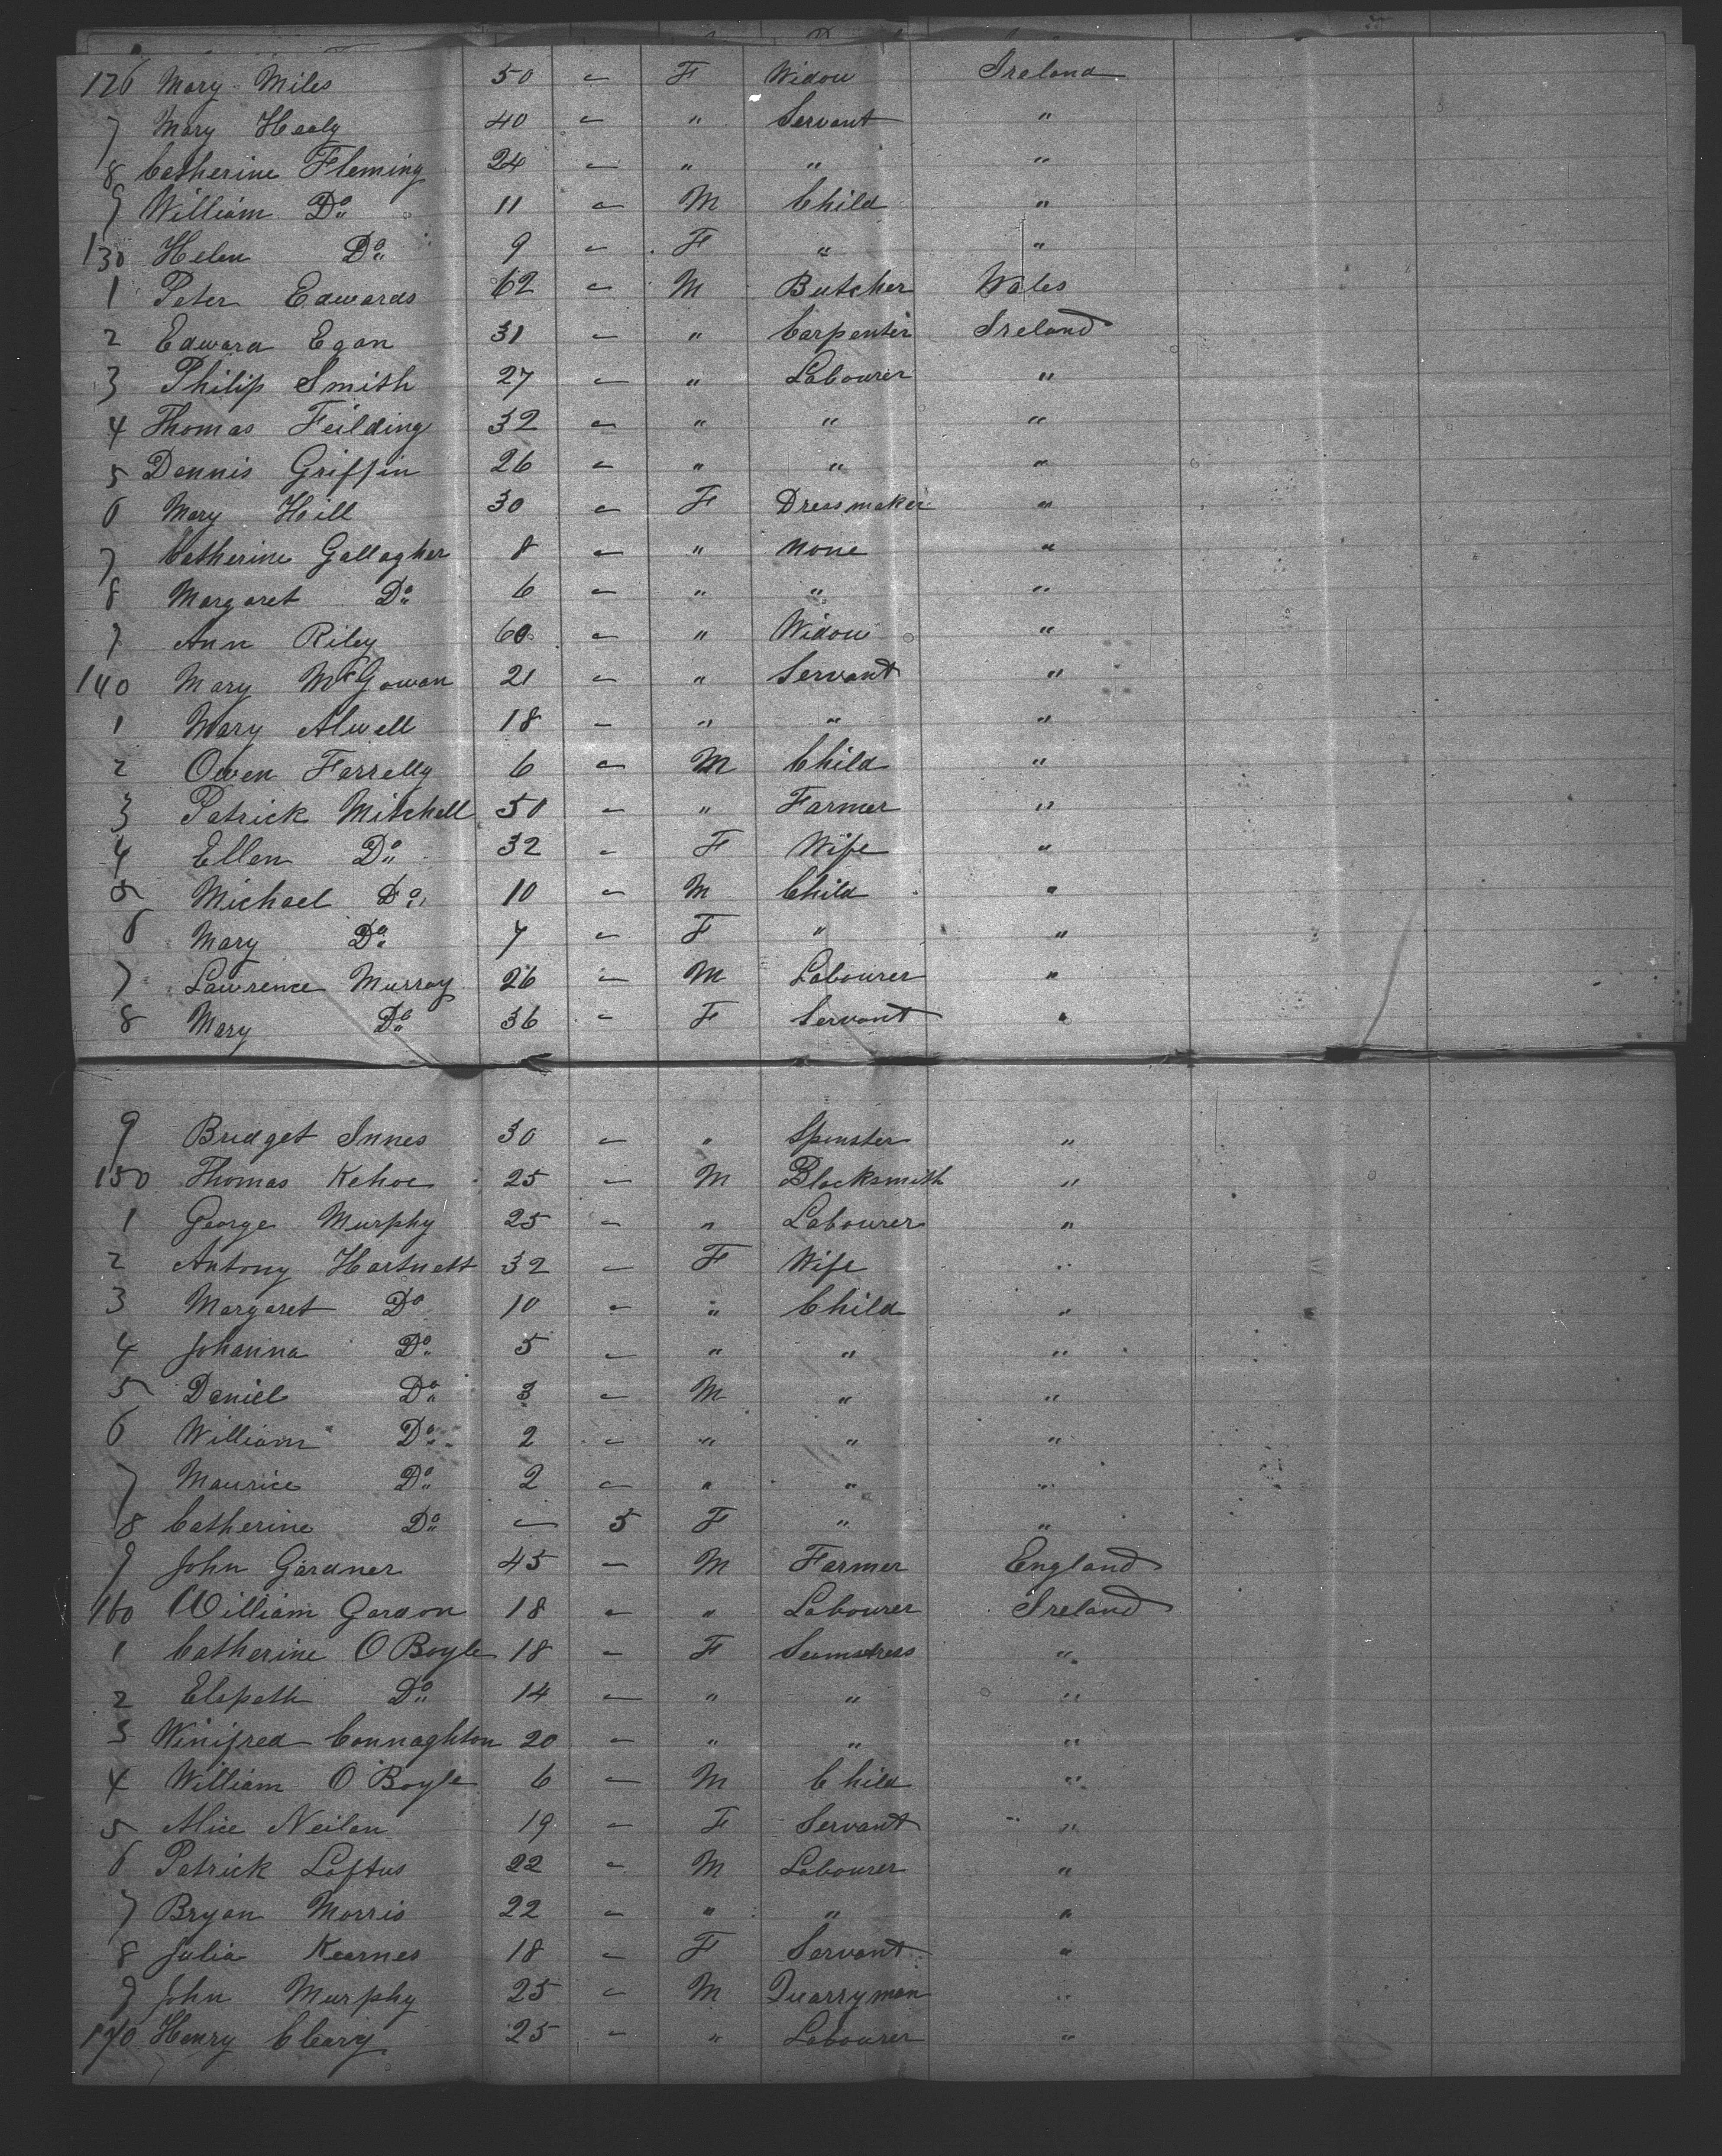 126 Mary Miles 50 – F Widow Ireland
7 Mary Healy 40 – " Servant "
8 Catherine Fleming 24 – " " "
9 William Do 11 – M Child "
130 Helen Do 9 – F " "
1 Peter Edwards 62 – M Butcher Wales
2 Edward Egan 31 – " Carpenter Ireland
3 Philip Smith 27 – " Labourer "
4 Thomas Feilding 32 – " " "
5 Dennis Griffin 26 – " " "
6 Mary Hill 30 – F Dressmaker "
7 Catherine Gallagher 8 – " none "
8 Margaret Do 6 – " " "
9 Ann Riley 60 – " Widow "
140 Mary McGowan 21 – " Servant "
1 Mary Alwell 18 – " " "
2 Owen Farrelly 6 – M Child "
3 Patrick Mitchell 50 – " Farmer "
4 Ellen Do 32 – F Wife "
5 Michael Do 10 – M Child "
6 Mary Do 7 – F " "
7 Lawrence Murray 26 – M Labourer "
8 Mary Do 36 – F Servant "
9 Bridget Innes 30 – " Spinster "
150 Thomas Kehoe 25 – M Blacksmith "
1 George Murphy 25 – " Labourer "
2 Antony Hartnett 32 – F Wife "
3 Margaret Do 10 – " Child "
4 Johanna Do 5 – " " "
5 Daniel Do 3 – M " "
6 William Do 2 – " " "
7 Maurice Do 2 – " " "
8 Catherine Do – 5 F " "
9 John Gardner 45 – M Farmer England
160 William Gordon 18 – " Labourer Ireland
1 Catherine O Boyle 18 – F Seamstress "
2 Elspeth Do 14 – " " "
3 Winifred Connaghton 20 – " " "
4 William O Boyle 6 – M Child "
5 Alice Neilan 19 – F Servant "
6 Patrick Loftus 22 – M Labourer "
7 Bryan Morris 22 – " " "
8 Julia Kearnes 18 – F Servant "
9 John Murphy 25 – M Quarryman "
170 Henry Cleary 25 – " Labourer "